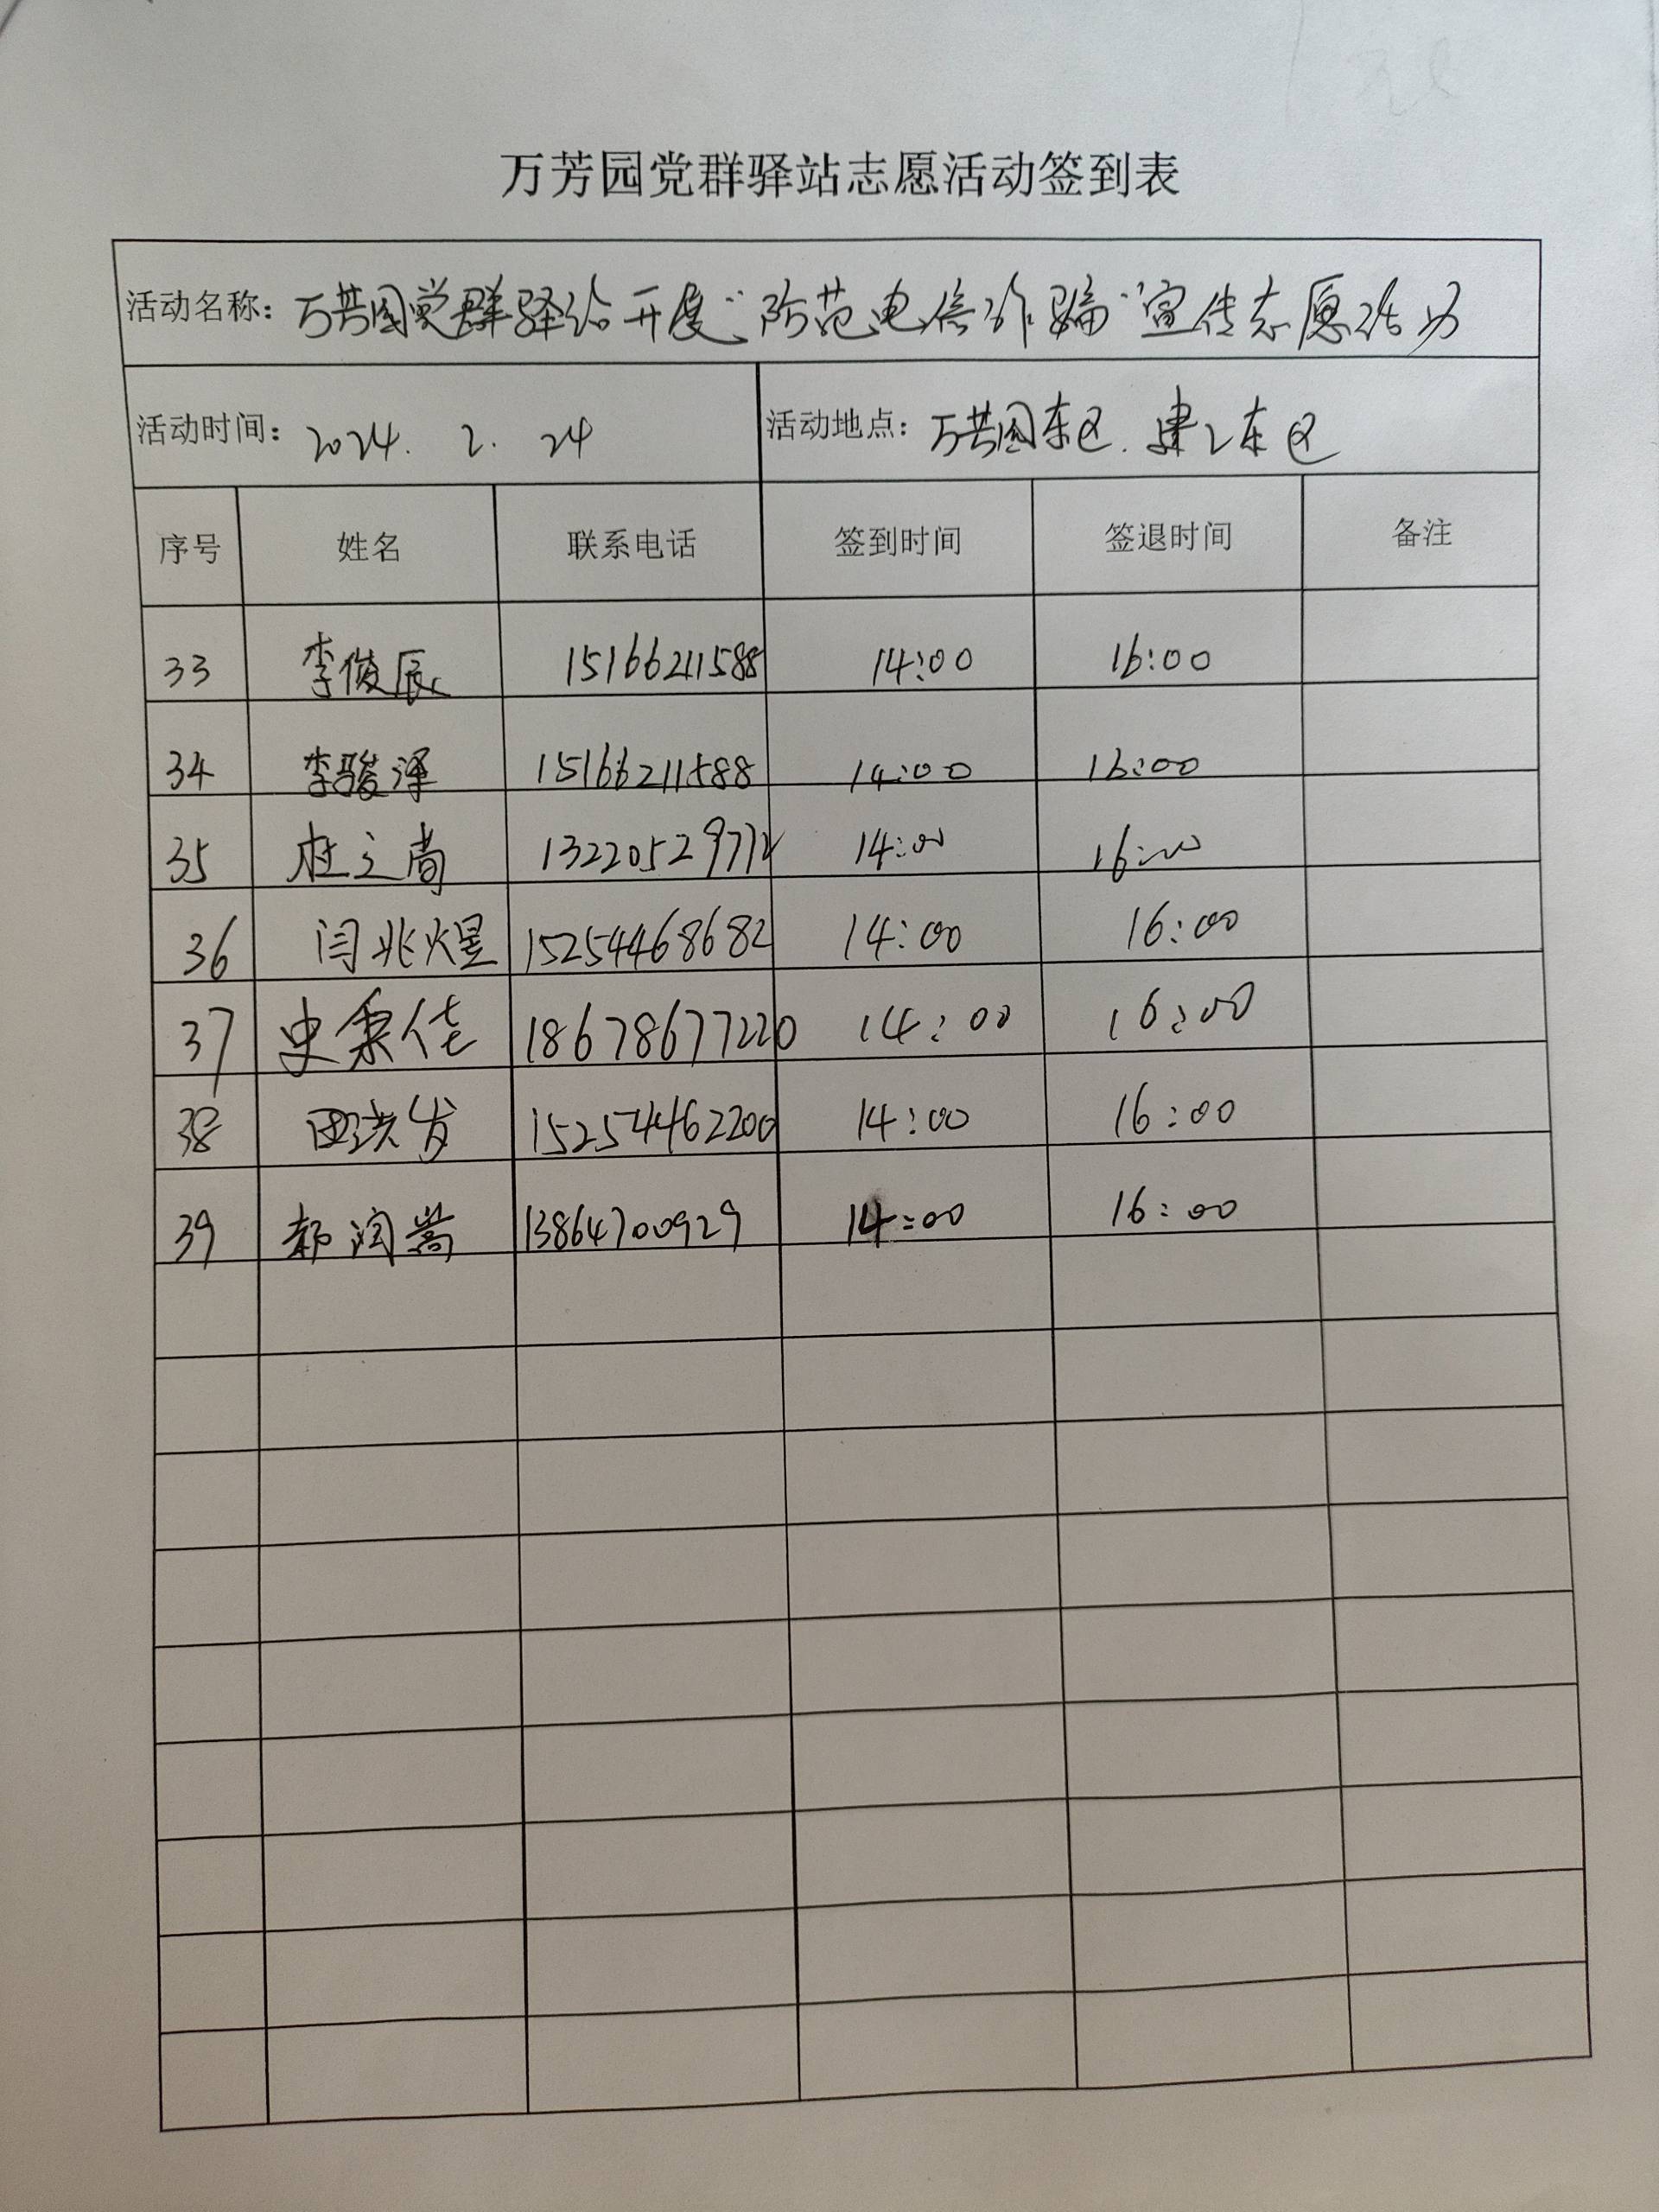 万芳园党群驿站志愿活动签到表
活动名称: 万芳园党群驿站开展“防范电信诈骗”宣传志愿活动
活动时间: 2024. 2. 24 活动地点: 万芳园东区. 建工东区
序号 姓名 联系电话 签到时间 签退时间 备注
33 李俊辰 15166211588 14:00 16:00
34 李骏泽 15166211588 14:00 16:00
35 杜之尚 14:00 16:00
36 闫兆煜 15254468682 14:00 16:00
37 史秉佳 18678677220 14:00 16:00
38 田洪发 15254462200 14:00 16:00
39 13864700929 14:00 16:00